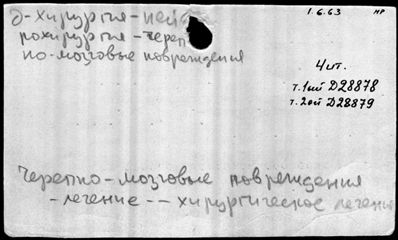 Д-хирургия-ней
рохирургия-череп
но-мозговые повреждения
1.6.63 НР
4 чт.
т.1ый D28878
т.2ой D28879
Черепно-мозговые повреждения
-лечение--хирургическое лечение